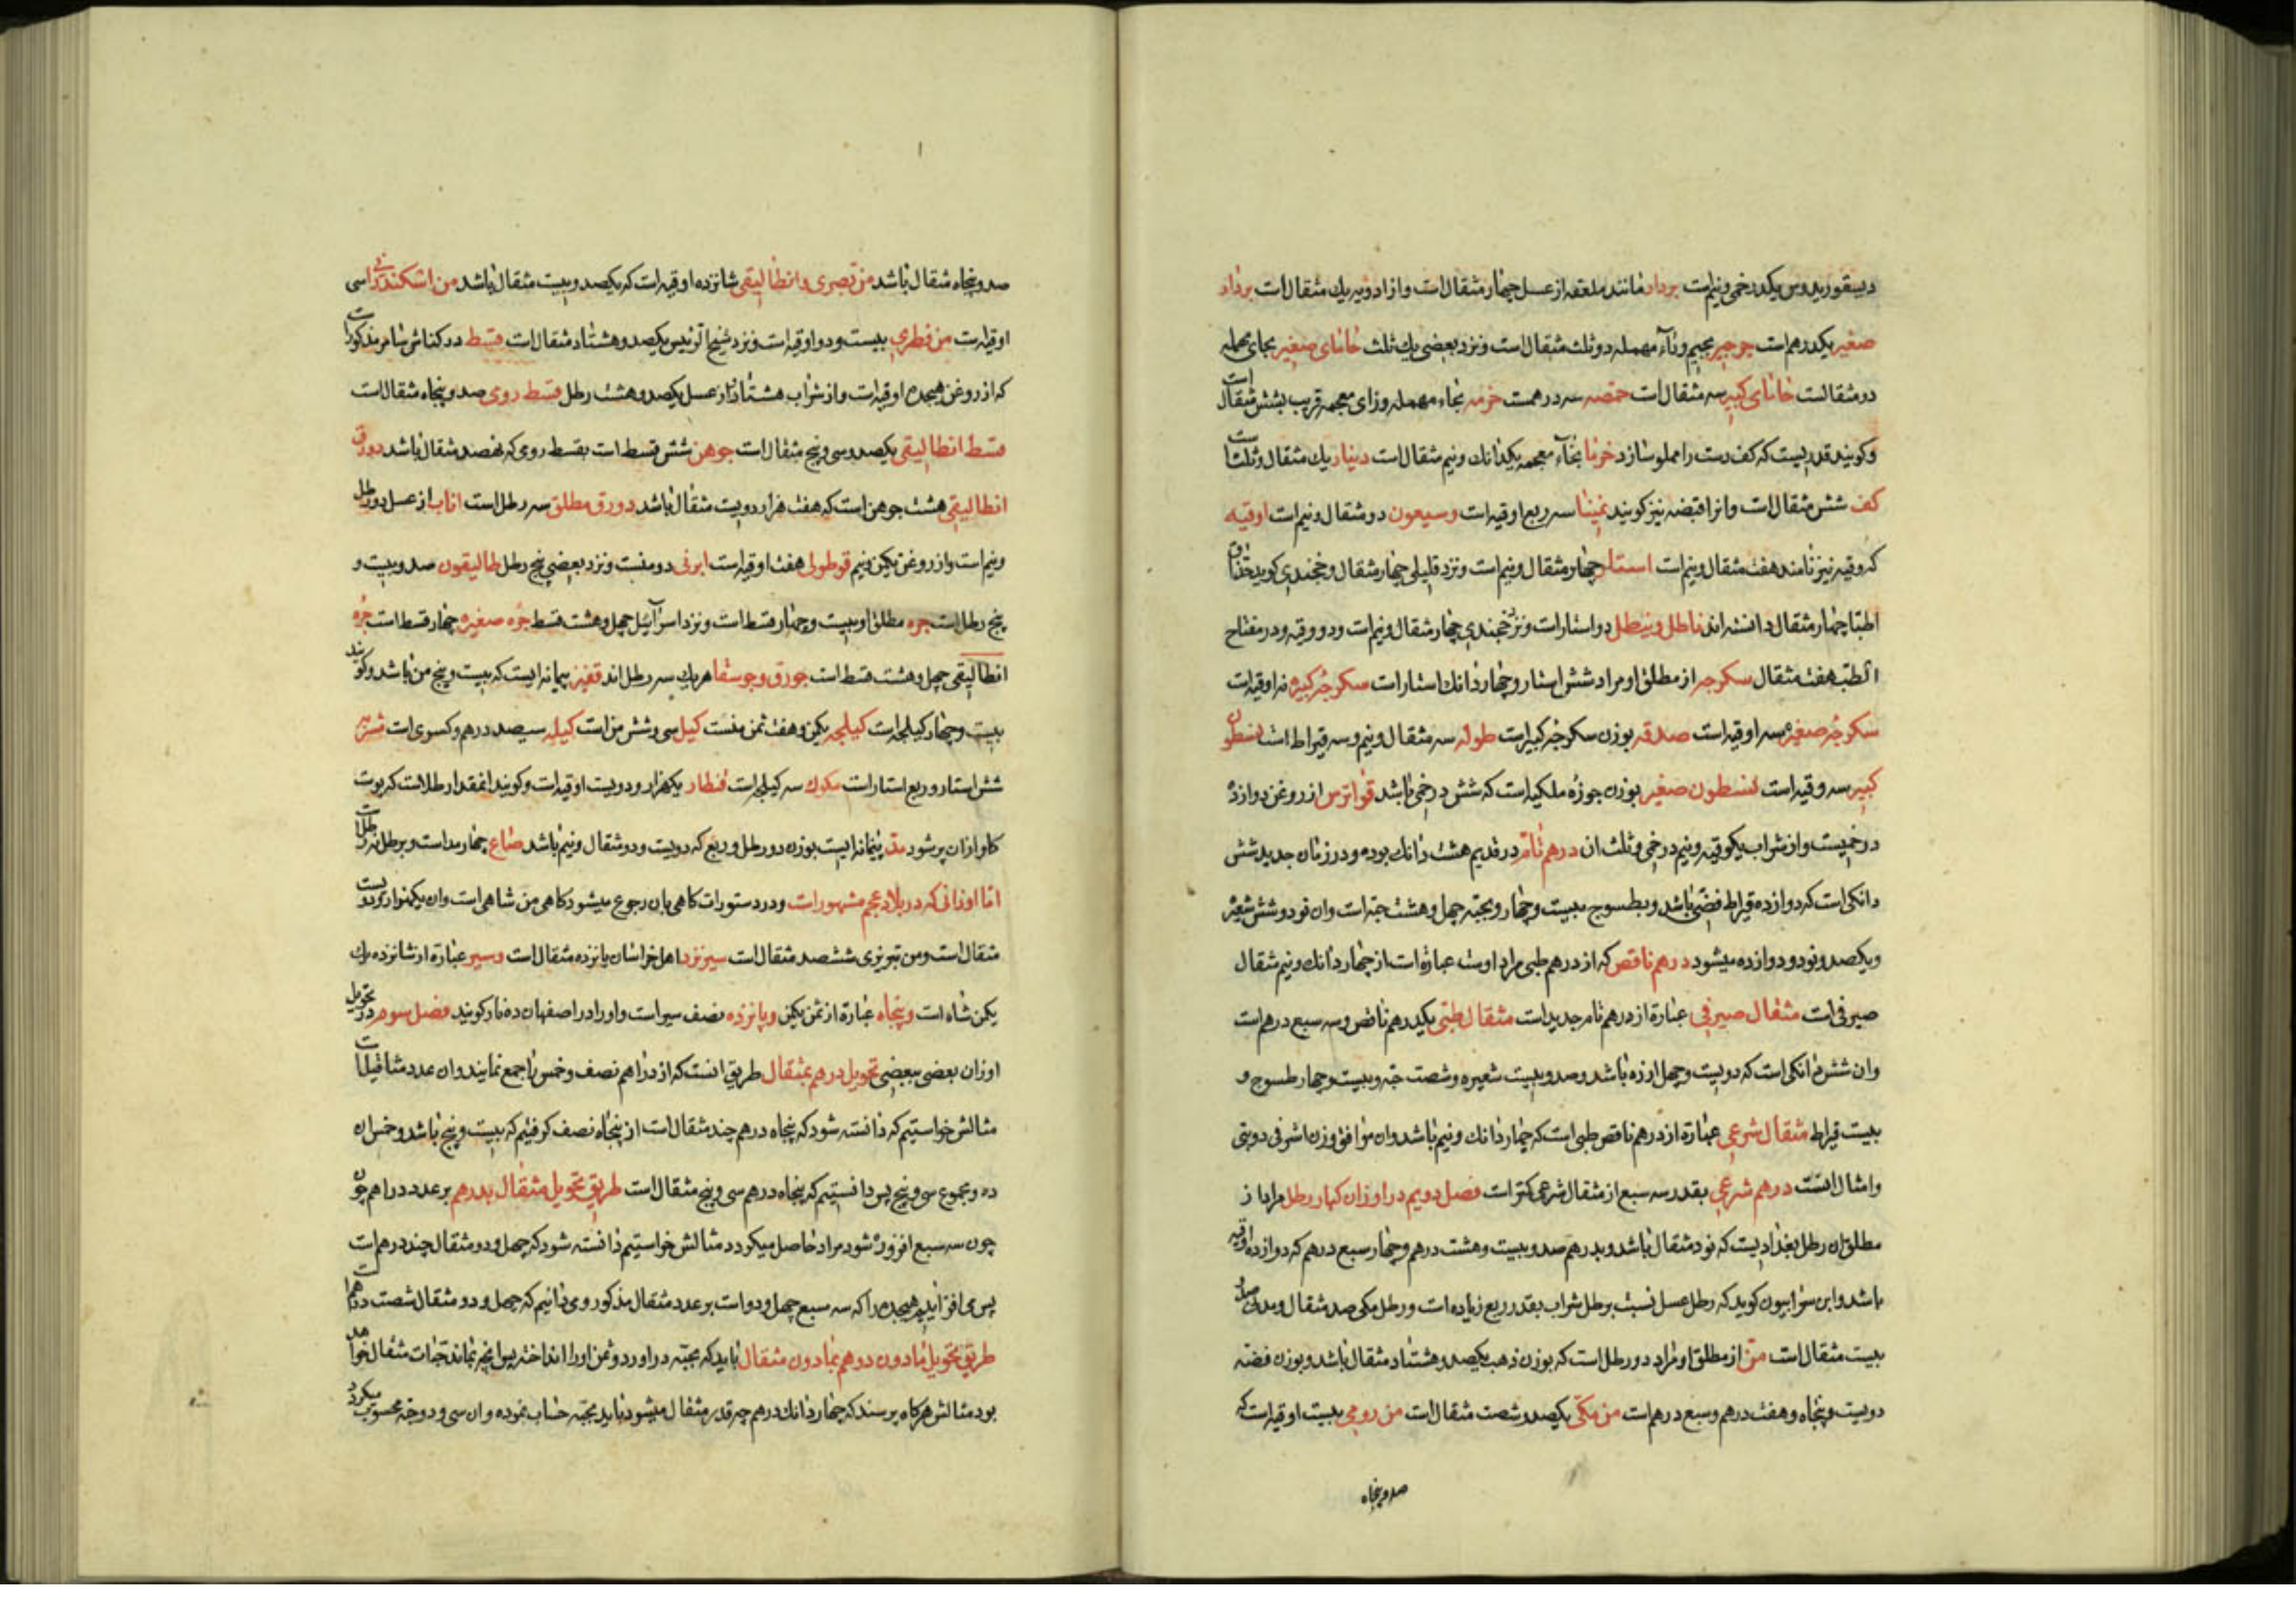 دیسقوریدوس یکدرخمی و نیم است بردار مانند ملعقه از عسل چهار مثقال است و از ادویه یک مثقال است برداد
صغیر یکدرهم است جوجیر بجیم و راء مهمله دو ثلث مثقال است و نزد بعضی یک ثلث حامای صغیر بحای مهمله
دو مثقالست حامای کبیر سه مثقال است حمصه سه درهمست خرمه بخاء مهمله و زای معجمه قریب بشش مثقال است
و کویند قدریست که کف دست را مملو سازد خرما بخاء معجمه یکدانک و نیم مثقال است دینار یک مثقال و ثلث است
کف شش مثقال است و انرا قبضه نیز کویند سه ربع اوقیه است وسیعون دو مثقال و نیم است اوقیه
که وقیه نیز نامند هفت مثقال و نیم است استار چهار مثقال و نیم است و نزد قلیلی چهار مثقال و خجندی کوید حذاق
اطبا چهار مثقال دانسته اند ناطل و نیطل دو استار است و نزد خجندی چهار مثقال و نیم است و دو وقیه و در مفتاح
الطب هفت مثقال سکرجه از مطلق او مراد شش استار و چهار دانک استار است سکرجه کبیره نه اوقیه است
سکرجه صغیره سه اوقیه است صدفه بوزن سکرجه کبیر است طوله سه مثقال و نیم و سه قیراط است فسطون
کبیر سه وقیه است فسطون صغیر بوزن جوزه ملکیه است که شش درخمی باشد قواترس از روغن دوازده
درخمیست و از شراب یکوقیه و نیم درخمی و ثلث ان درهم تام در قدیم هشت دانک بوده و در زمان جدید شش
دانکی است که دوازده قیراط فضی باشد و بطسوج بیست و چهار و بحبه چهل و هشت حبه است وان نود و شش شعیر
و یکصد و نود و دوازده میشود درهم ناقص که از درهم طبی مراد اوست عبارة است از چهار دانک و نیم مثقال
صیرفی است مثقال صیرفی عبارة از درهم تام جدید است مثقال طبی یکدرهم ناقص و سه سبع درهم است
وان شش دانکی است که دویست و چهل ارزه باشد و صد و بیست شعیره و شصت حبه و بیست و چهار طسوج و
بیست قیراط مثقال شرعی عبارة از درهم ناقص طبی است که چهار دانک و نیم باشد وان موافق وزن اشرفی دوبتی
و امثال انست درهم شرعی بقدر سه سبع از مثقال شرعی کمتر است فصل دویم در اوزان کبار رطل مراد از
مطلق ان رطل بغدادیست که نود مثقال باشد و بدرهم صد و بیست و هشت درهم و چهار سبع درهم که دوازده اوقیه
باشد و ابن سرابیون کوید که رطل عسل نسبت برطل شراب بقدر ربع زیاده است و رطل مکی صد مثقال و مدنی صد و
بیست مثقال است من از مطلق او مراد دو رطل است که بوزن ذهب یکصد و هشتاد مثقال باشد و بوزن فضه
دویست و پنجاه و هفت درهم و سبع درهم است من مکی یکصد و شصت مثقال است من رومی بیست اوقیه است که
صد و پنجاه
صد و پنجاه مثقال باشد من قصری و انطالیقی شانزده اوقیه است که یکصد و بیست مثقال باشد من اسکندرانی سی
اوقیه است من فطری بیست و دو اوقیه است و نزد شیخ الرئیس یکصد و هشتاد مثقال است قسط در کناش مذکور است
که از روغن هیجده اوقیه است و از شراب هشتاد و از عسل یکصد و هشت رطل قسط روی صد و پنجاه مثقال است
قسط انطالیقی یکصد و سی و پنج مثقال است جوهن شش قسط است بقسط روی که نهصد مثقال باشد دورق
انطالیقی هشت جوهن است که هفت هزار و دویست مثقال باشد دورق مطلق سه رطل است اناب از عسل دو رطل
و نیم است و از روغن یکمن و نیم قوطولی هفت اوقیه است ابرنی دو منست و نزد بعضی پنج رطل طالیقون صد و بیست و
پنج رطل است جره مطلق او بیست و چهار قسط است و نزد اسرائیل چهل و هشت قسط جره صغیره چهار قسط است جره
انطالیقی چهل و هشت قسط است جورق و جوسقا هر یک سه رطل اند قفیز پیمانه ایست که بیست و پنج من باشد و کویند
بیست و چهار کیلجه است کیلجه یکمن و هفت ثمن منست کیل سی و شش من است کیله سیصد درهم و کسری است
شش استار و ربع استار است مکوک سه کیلجه است قنطار یکهزار و دویست اوقیه است و کویند انمقدار طلاست که پوست
کاو ازان پر شود مد پیمانه ایست بوزن دو رطل و ربع که دویست و دو مثقال و نیم باشد صاع چهار مد است و برطل نه رطل است
اما اوزانی که در بلاد عجم مشهور است و در دستورات کاهی بان رجوع میشود کاهی من شاهی است وان یکهزار و دویست
مثقال است و من تبریزی ششصد مثقال است سیر نزد اهل خراسان پانزده مثقال است و سیر عبارة از شانزده یک
یکمن شاه است و پنجاه عبارة از ثمن یکمن و پانزده نصف سیر است و اورا در اصفهان ده نار کویند فصل سوم در تحویل
اوزان بعضی ببعضی تحویل درهم بمثقال طریق انست که از دراهم نصف و خمس را جمع نمایند وان عدد مثاقیل است
مثالش خواستیم که دانسته شود که پنجاه درهم چند مثقال است از پنجاه نصف کرفتیم که بیست و پنج باشد و خمس ان
ده و مجموع سی و پنج پس دانستیم که پنجاه درهم سی و پنج مثقال است طریق تحویل مثقال بدرهم بر عدد دراهم چون
چون سه سبع افزوده شود مراد حاصل میکردد مثالش خواستیم دانسته شود که چهل و دو مثقال چند درهم است
پس می افزاییم هیجده را که سه سبع چهل و دو است بر عدد مثقال مذکور وی دانیم که چهل و دو مثقال شصت درهم است
طریق تحویل مادون درهم بمادون مثقال باید که بحبه در اورد و ثمن اورا انداخته پس انچه بماند حبات مثقال خواهد
بود مثالش هر کاه پرسند که چهار دانک درهم چه قدر مثقال میشود باید بحبه حساب نموده وان سی و دو حبه محسوب میکردد